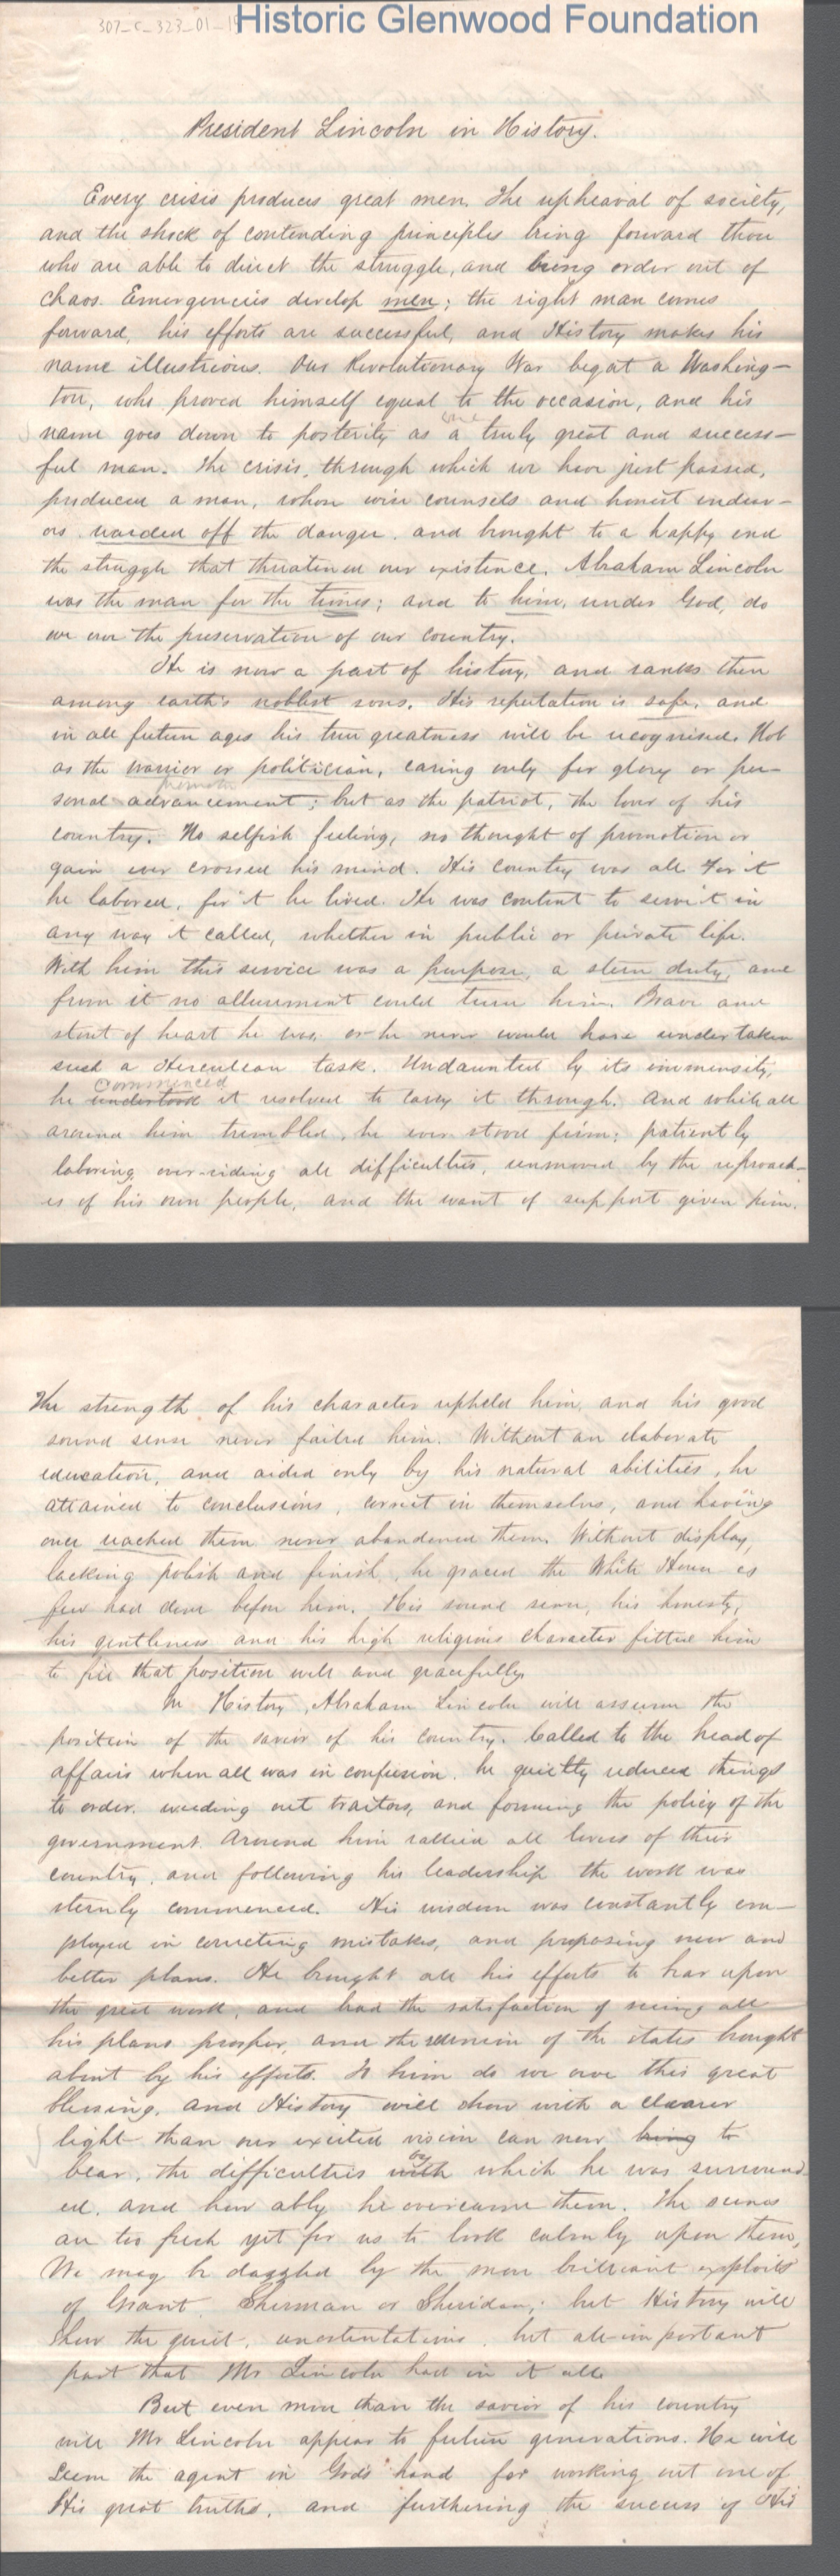 307-c-323-01-19
Historic Glenwood Foundation
President Lincoln in History.
Every crisis produces great men. The upheaval of society,
and the shock of contending principles bring forward those
who are able to direct the struggle, and bring order out of
chaos. Emergencies develop men; the right man comes
forward, his efforts are successful, and History makes his
name illustrious. Our Revolutionary War begat a Washing-
ton, who proved himself equal to the occasion, and his
name goes down to posterity as a truly great and success-
ful man. The crisis, through which we have just passed,
produced a man, whose wise counsels and honest endeav-
ors warded off the danger, and brought to a happy end
the struggle that threatened our existence. Abraham Lincoln
was the man for the times; and to him, under God, do
we owe the preservation of our country.
He is now a part of history, and ranks then
among earth's noblest sons. His reputation is safe, and
in all future ages his true greatness will be recognised. Not
as the warrior or politician, caring only for glory or per-
sonal advancement; but as the patriot, the lover of his
country. No selfish feeling, no thought of promotion or
gain ever crossed his mind. His country was all. For it
he labored, for it he lived. He was content to serve it in
any way it called, whether in public or private life.
With him this service was a purpose, a stern duty, and
from it no allurement could turn him. Brave and
stout of heart he was, or he never would have undertaken
such a Herculean task. Undaunted by its immensity,
commenced
he understood it resolved to carry it through. And while all
around him trembled, he ever stood firm; patiently
laboring, over-riding all difficulties, unmoved by the reproach-
es of his own people, and the want of support given him.
The strength of his character upheld him, and his good
sound sense never failed him. Without an elaborate
education, and aided only by his natural abilities, he
attained to conclusions, correct in themselves, and having
once reached them never abandoned them. Without display,
lacking polish and finish, he graced the White House as
few had done before him. His sound sense, his honesty,
his gentleness and his high religious character fitted him
to fill that position well and gracefully.
In History, Abraham Lincoln will assume the
position of the savior of his country. Called to the head of
affairs when all was in confusion, he quietly reduced things
to order, weeding out traitors, and forming the policy of the
government. Around him rallied all lovers of their
country, and following his leadership the work was
sternly commenced. His wisdom was constantly em-
ployed in correcting mistakes, and proposing new and
better plans. He brought all his efforts to bear upon
the great work, and had the satisfaction of seeing all
his plans prosper, and the reunion of the states brought
about by his efforts. To him do we owe this great
blessing, and History will show with a clearer
light than our excited vision can now bring to
by
bear, the difficulties with which he was surround-
ed, and how ably he overcame them. The scenes
are too fresh yet for us to look calmly upon them,
We may be dazzled by the more brilliant exploits
of Grant, Sherman or Sheridan; but History will
show the quiet, unostentatious, but all-important
part that Mr Lincoln had in it all.
But even more than the savior of his country
will Mr Lincoln appear to future generations. He will
seem the agent in God's hand for working out one of
His great truths, and furthering the success of His